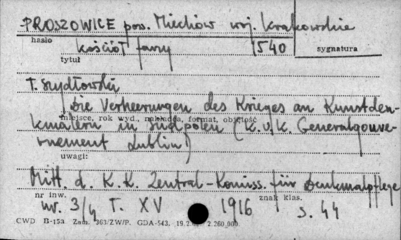 PROSZOWICE pow. Miechów woj. krakowskie
hasło
kościół farny 1540
tytuł
sygnatura
T. Szydłowski
Die Verheerungen des Krieges an Kunstden-
kmälern in Südpolen (K.u.k. Generalgouve-
miejsce, rok wyd., nakładca, format, objętość
rnement Lublin)
uwagi:
Mitt. d. K.K. Zentral-Komiss. für Denkmalpflege
nr inw. znak klas.
nr. 3/4 T. XV 1916 S. 44
CWD B-153. Zam. 363/ZW/P. GDA-543.